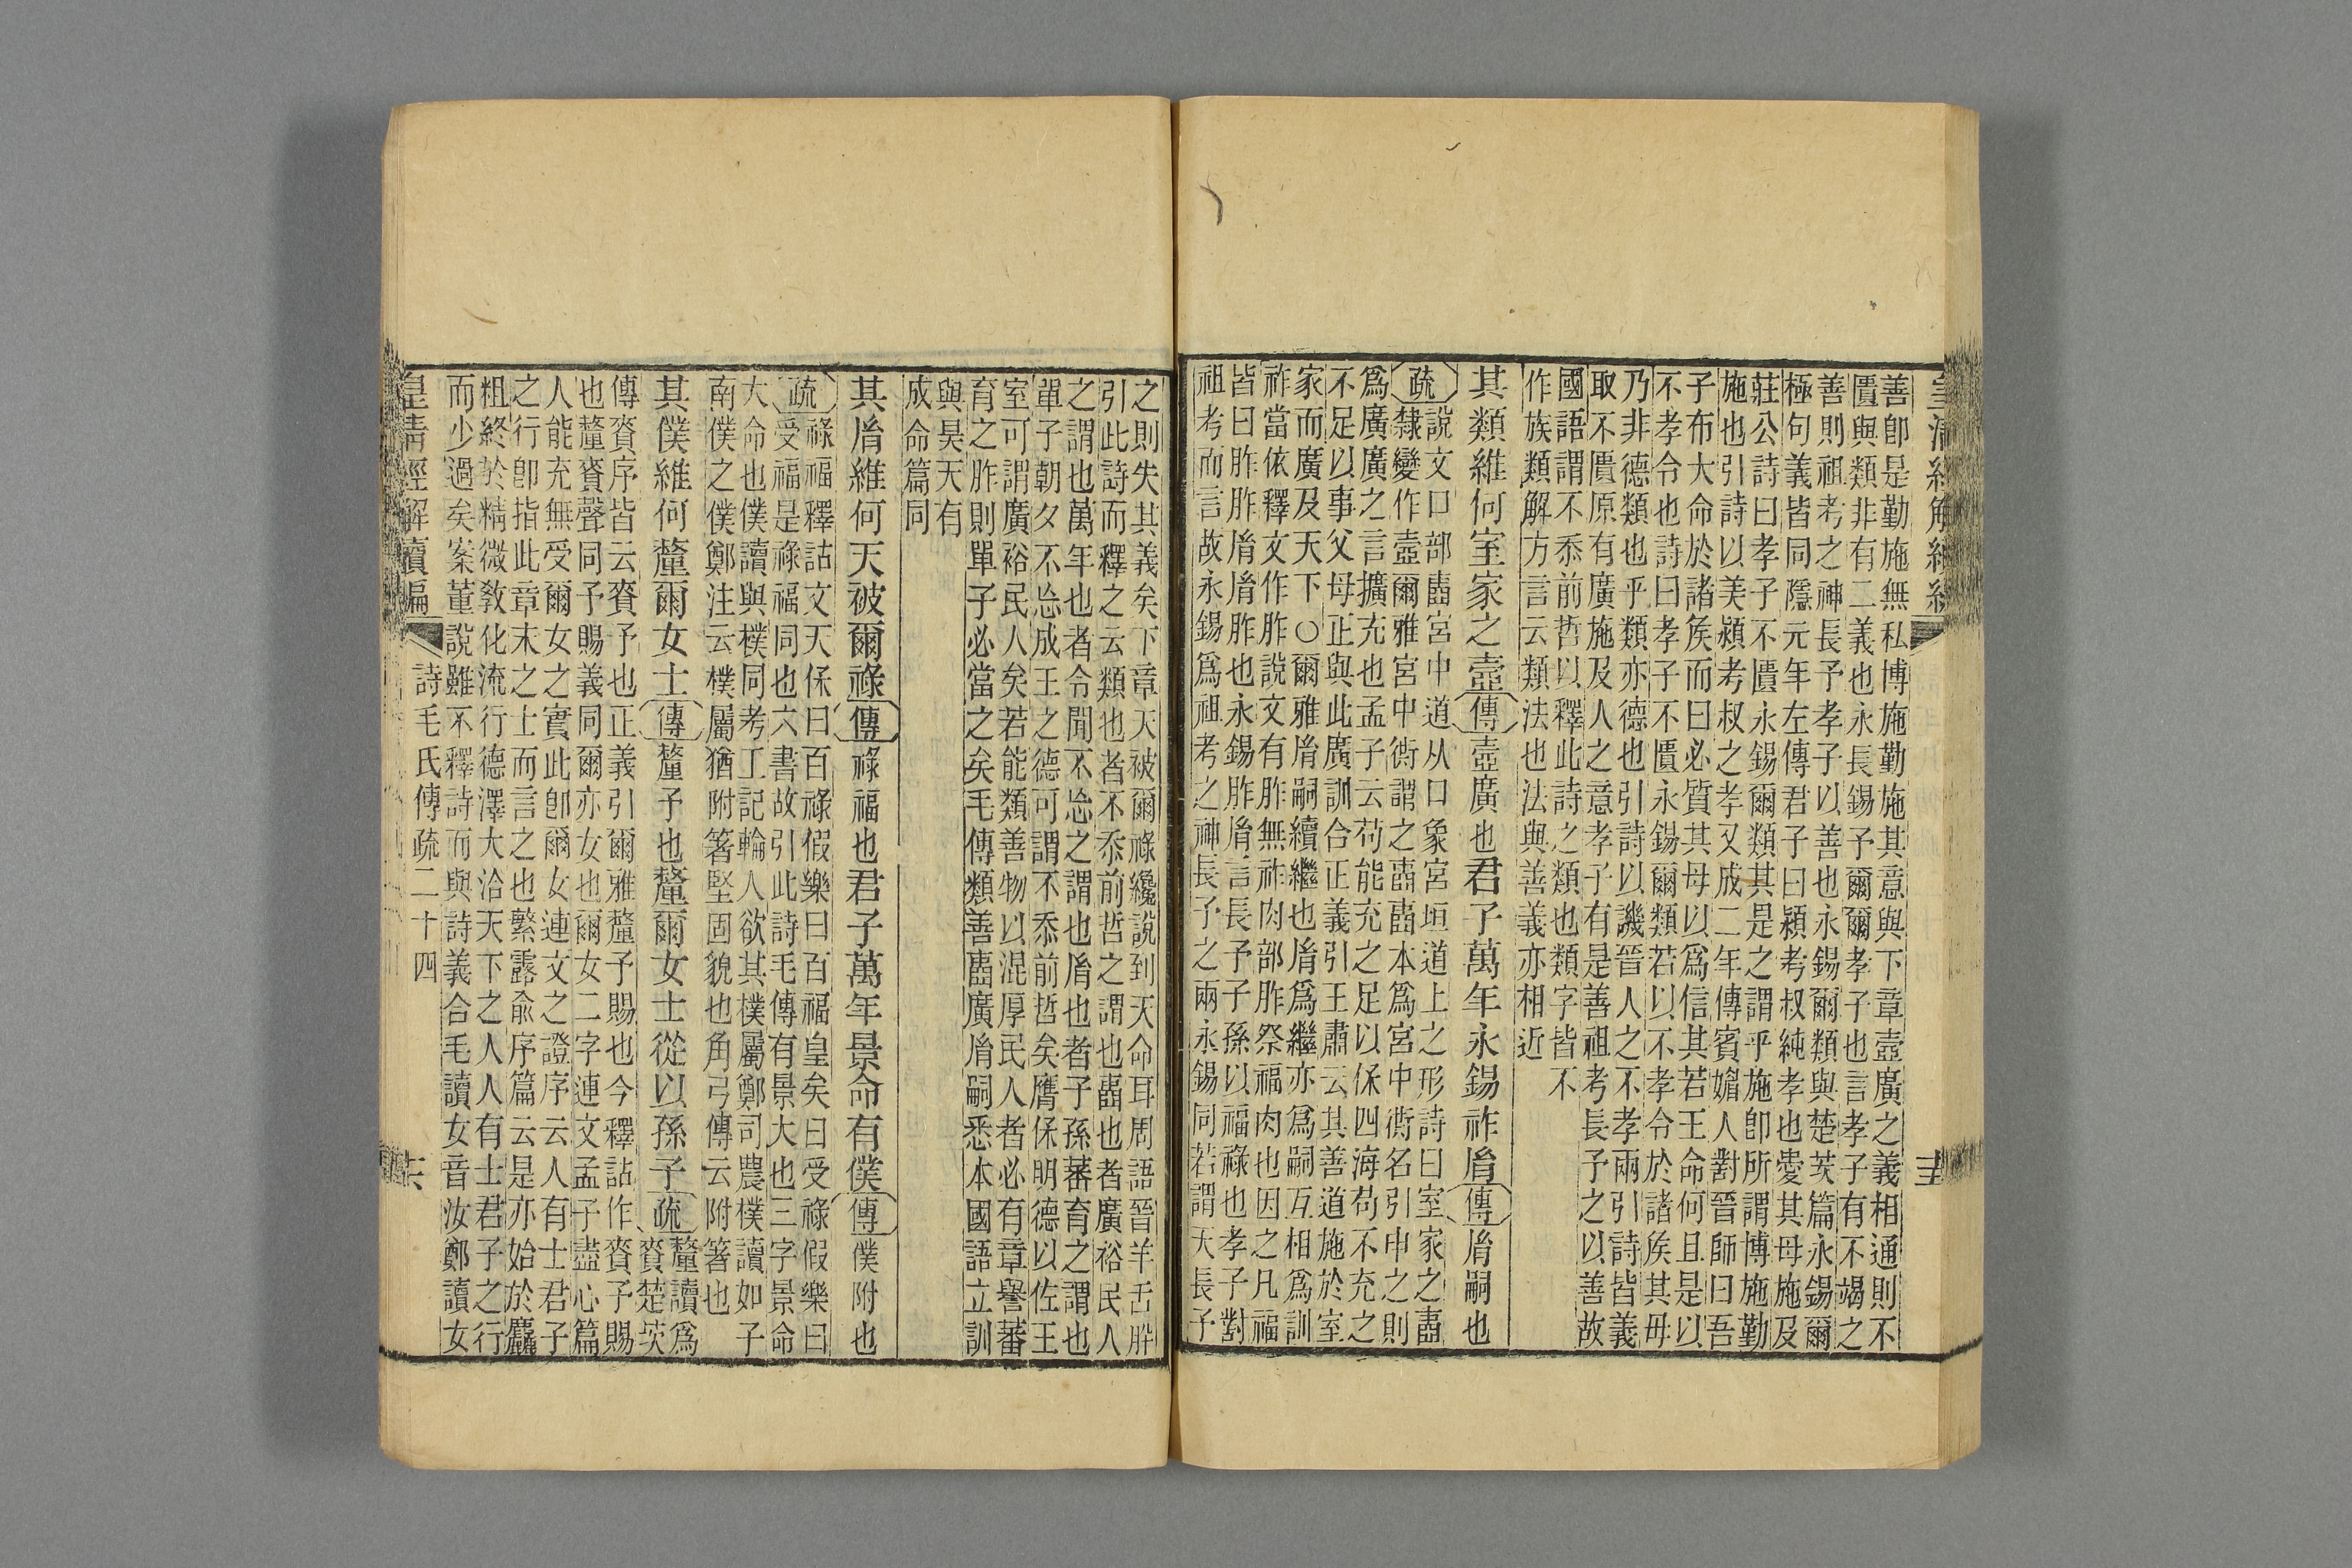 皇清經解續編
善卽是勤施無私博施勤施其意與下章壼廣之義相通則不
匱與類非有二義也永長錫予爾爾孝子也言孝子有不竭之
善則祖考之神長予孝子以善也永錫爾類與楚茨篇永錫爾
極句義皆同隱元年左傳君子曰潁考叔純孝也愛其母施及
莊公詩曰孝子不匱永錫爾類其是之謂乎施卽所謂博施勤
施也引詩以美潁考叔之孝又成二年傳賓媚人對晉師曰吾
子布大命於諸矦而曰必質其母以爲信其若王命何且是以
不孝令也詩曰孝子不匱永錫爾類若以不孝令於諸矦其毋
乃非德類也乎類亦德也引詩以譏晉人之不孝兩引詩皆義
取不匱原有廣施及人之意孝子有是善祖考長予之以善故
國語謂不忝前哲以釋此詩之類也類字皆不
作族類解方言云類法也法與善義亦相近
其類維何室家之壼傳壼廣也君子萬年永錫祚胤傳胤嗣也
疏說文口部壼宮中道从口象宮垣道上之形詩曰室家之壼
隸變作壼爾雅宮中衖謂之壼壼本爲宮中衖名引申之則
爲廣廣之言擴充也孟子云苟能充之足以保四海苟不充之
不足以事父母正與此廣訓合正義引王肅云其善道施於室
家而廣及天下○爾雅胤嗣續繼也胤爲繼亦爲嗣互相爲訓
祚當依釋文作胙說文有胙無祚肉部胙祭福肉也因之凡福
皆曰胙胙胤胤胙也永錫胙胤言長予子孫以福祿也孝子對
祖考而言故永錫爲祖考之神長予之兩永錫同若謂天長予
之則失其義矣下章天被爾祿纔說到天命耳周語晉羊舌肸
引此詩而釋之云類也者不忝前哲之謂也壼也者廣裕民人
之謂也萬年也者令聞不忘之謂也胤也者子孫蕃育之謂也
單子朝夕不忘成王之德可謂不忝前哲矣膺保明德以佐王
室可謂廣裕民人矣若能類善物以混厚民人者必有章譽蕃
育之胙則單子必當之矣毛傳類善壼廣胤嗣悉本國語立訓
與昊天有
成命篇同
其胤維何天被爾祿傳祿福也君子萬年景命有僕傳僕附也
疏祿福釋詁文天保曰百祿假樂曰百福皇矣曰受祿假樂曰
受福是祿福同也六書故引此詩毛傳有景大也三字景命
大命也僕讀與樸同考工記輪人欲其樸屬鄭司農樸讀如子
南僕之僕鄭注云樸屬猶附箸堅固貌也角弓傳云附箸也
其僕維何釐爾女士傳釐予也釐爾女士從以孫子疏釐讀爲
賚楚茨
傳賚序皆云賚予也正義引爾雅釐予賜也今釋詁作賚予賜
也釐賚聲同予賜義同爾亦女也爾女二字連文孟子盡心篇
人能充無受爾女之實此卽爾女連文之證序云人有士君子
之行卽指此章末之士而言之也繁露兪序篇云是亦始於麤
粗終於精微敎化流行德澤大洽天下之人人有士君子之行
而少過矣案董說雖不釋詩而與詩義合毛讀女音汝鄭讀女
皇清經解續編
詩毛氏傳疏二十四